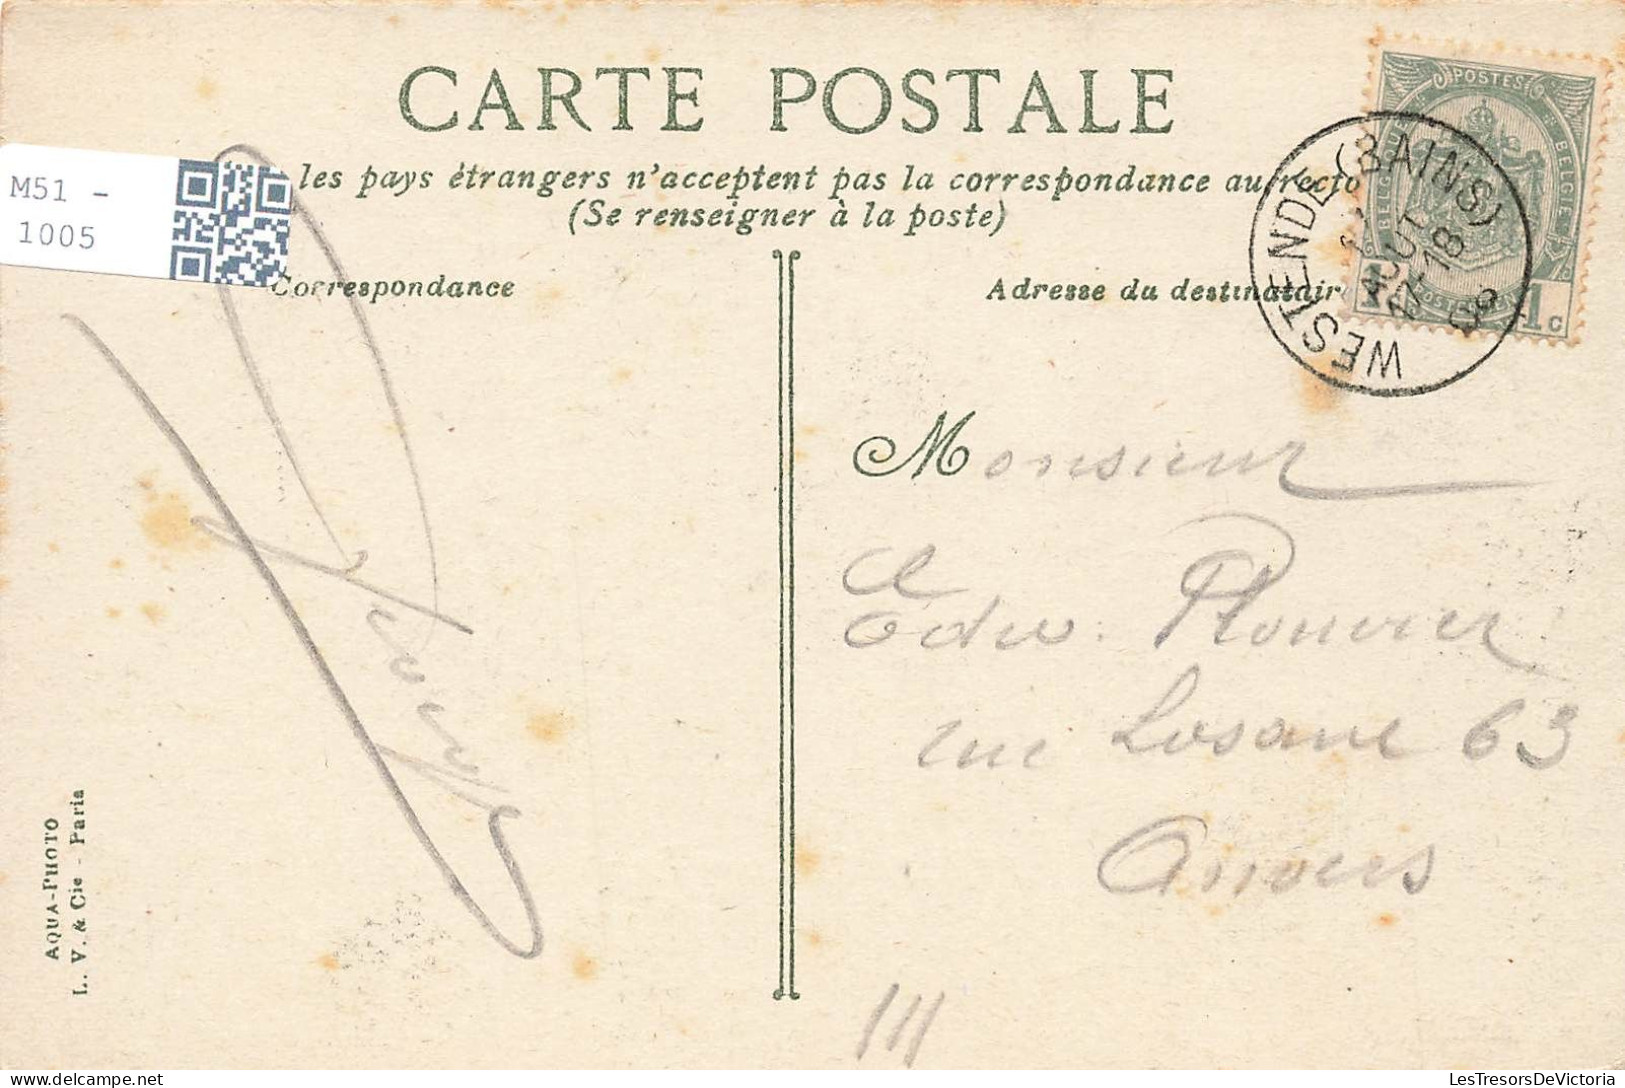 CARTE POSTALE
les pays étrangers n'acceptent pas la correspondance au recto
(Se renseigner à la poste)
M51 -
1005
Correspondance
Adresse du destinatair
POSTES
BELGIE
1 c
WESTENDE (BAINS)
AOUT
17-18
Monsieur
Edw. Plouvier
rue Losane 63
Anvers
AQUA-PHOTO
L. V. & Cie - Paris
LesTresorsDeVictoria